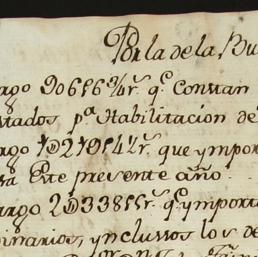 Por la de la Bu
argo 90656¾ r.s q.e Constan
stados p.a Habilitacion de
argo 1Ð21954½ r.s que ympor
este presente año
argo 2Ð33855 r.s q.e ymport
inarios, ynclussos lo s de